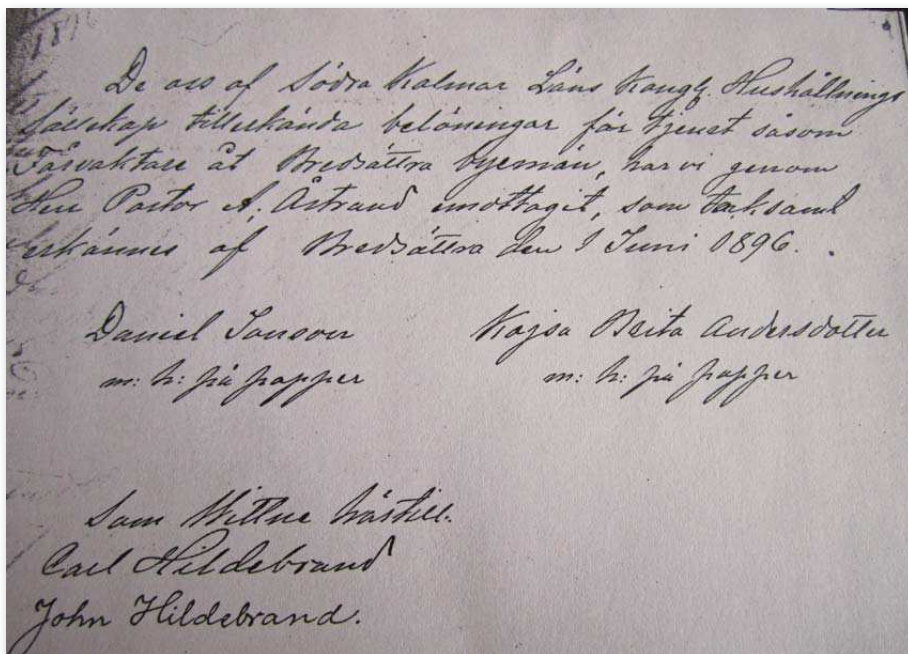 1896
De oss af Södra Kalmar Läns Kongl. Hushållnings
Sällskap tillerkända belöningar för tjenst såsom
Fårvaktare åt Bredsättra byemän, har vi genom
Herr Pastor A. Åstrand emottagit, som tacksamt
erkännes af Bredsättra den 1 Juni 1896.
Daniel Jonson Kajsa Brita Andersdotter
m: h: på papper m: h: på papper
Som Wittne härtill.
Carl Hildebrand
John Hildebrand.